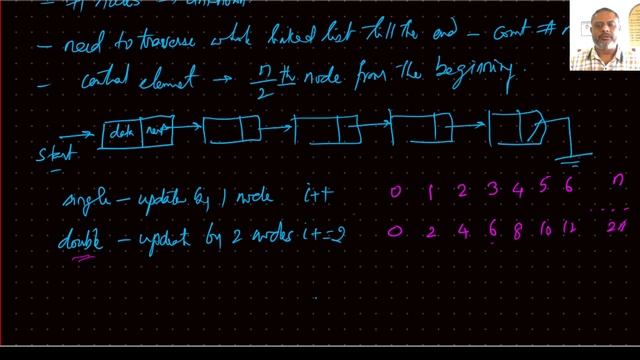 - # nodes → unknown
- need to traverse whole linked list till the end - count # n
- central element → n/2 th node from the beginning.
start data next
single - update by 1 node i++ 0 1 2 3 4 5 6 n
....
double - update by 2 nodes i+=2 0 2 4 6 8 10 12 2n